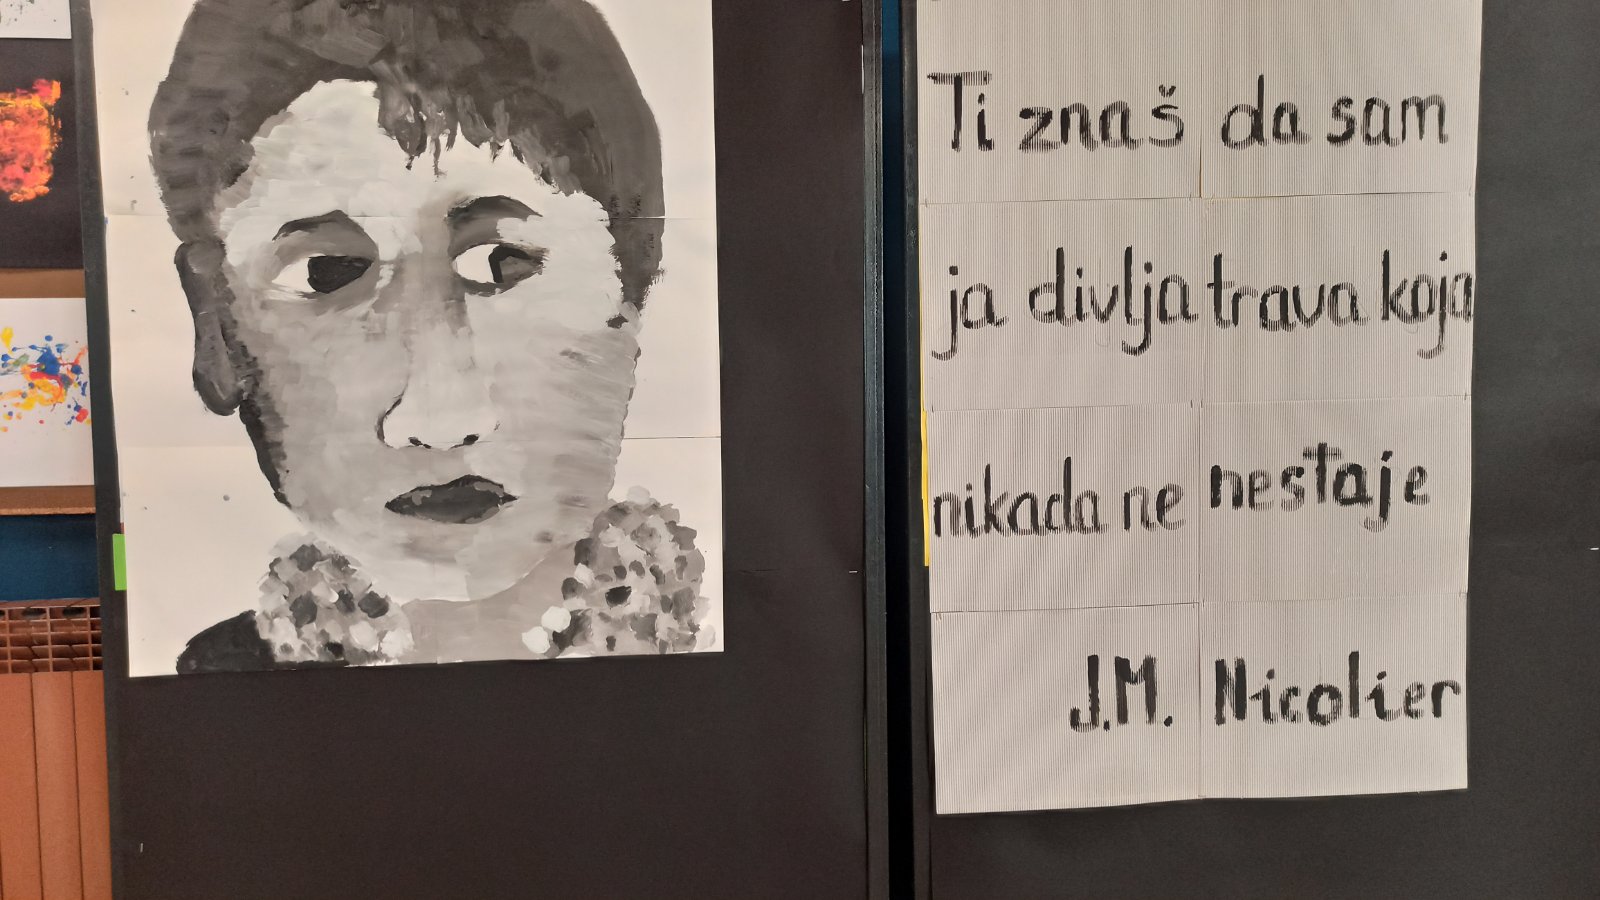 Ti znaš da sam
ja divlja trava koja
nikada ne nestaje
J.M. Nicolier